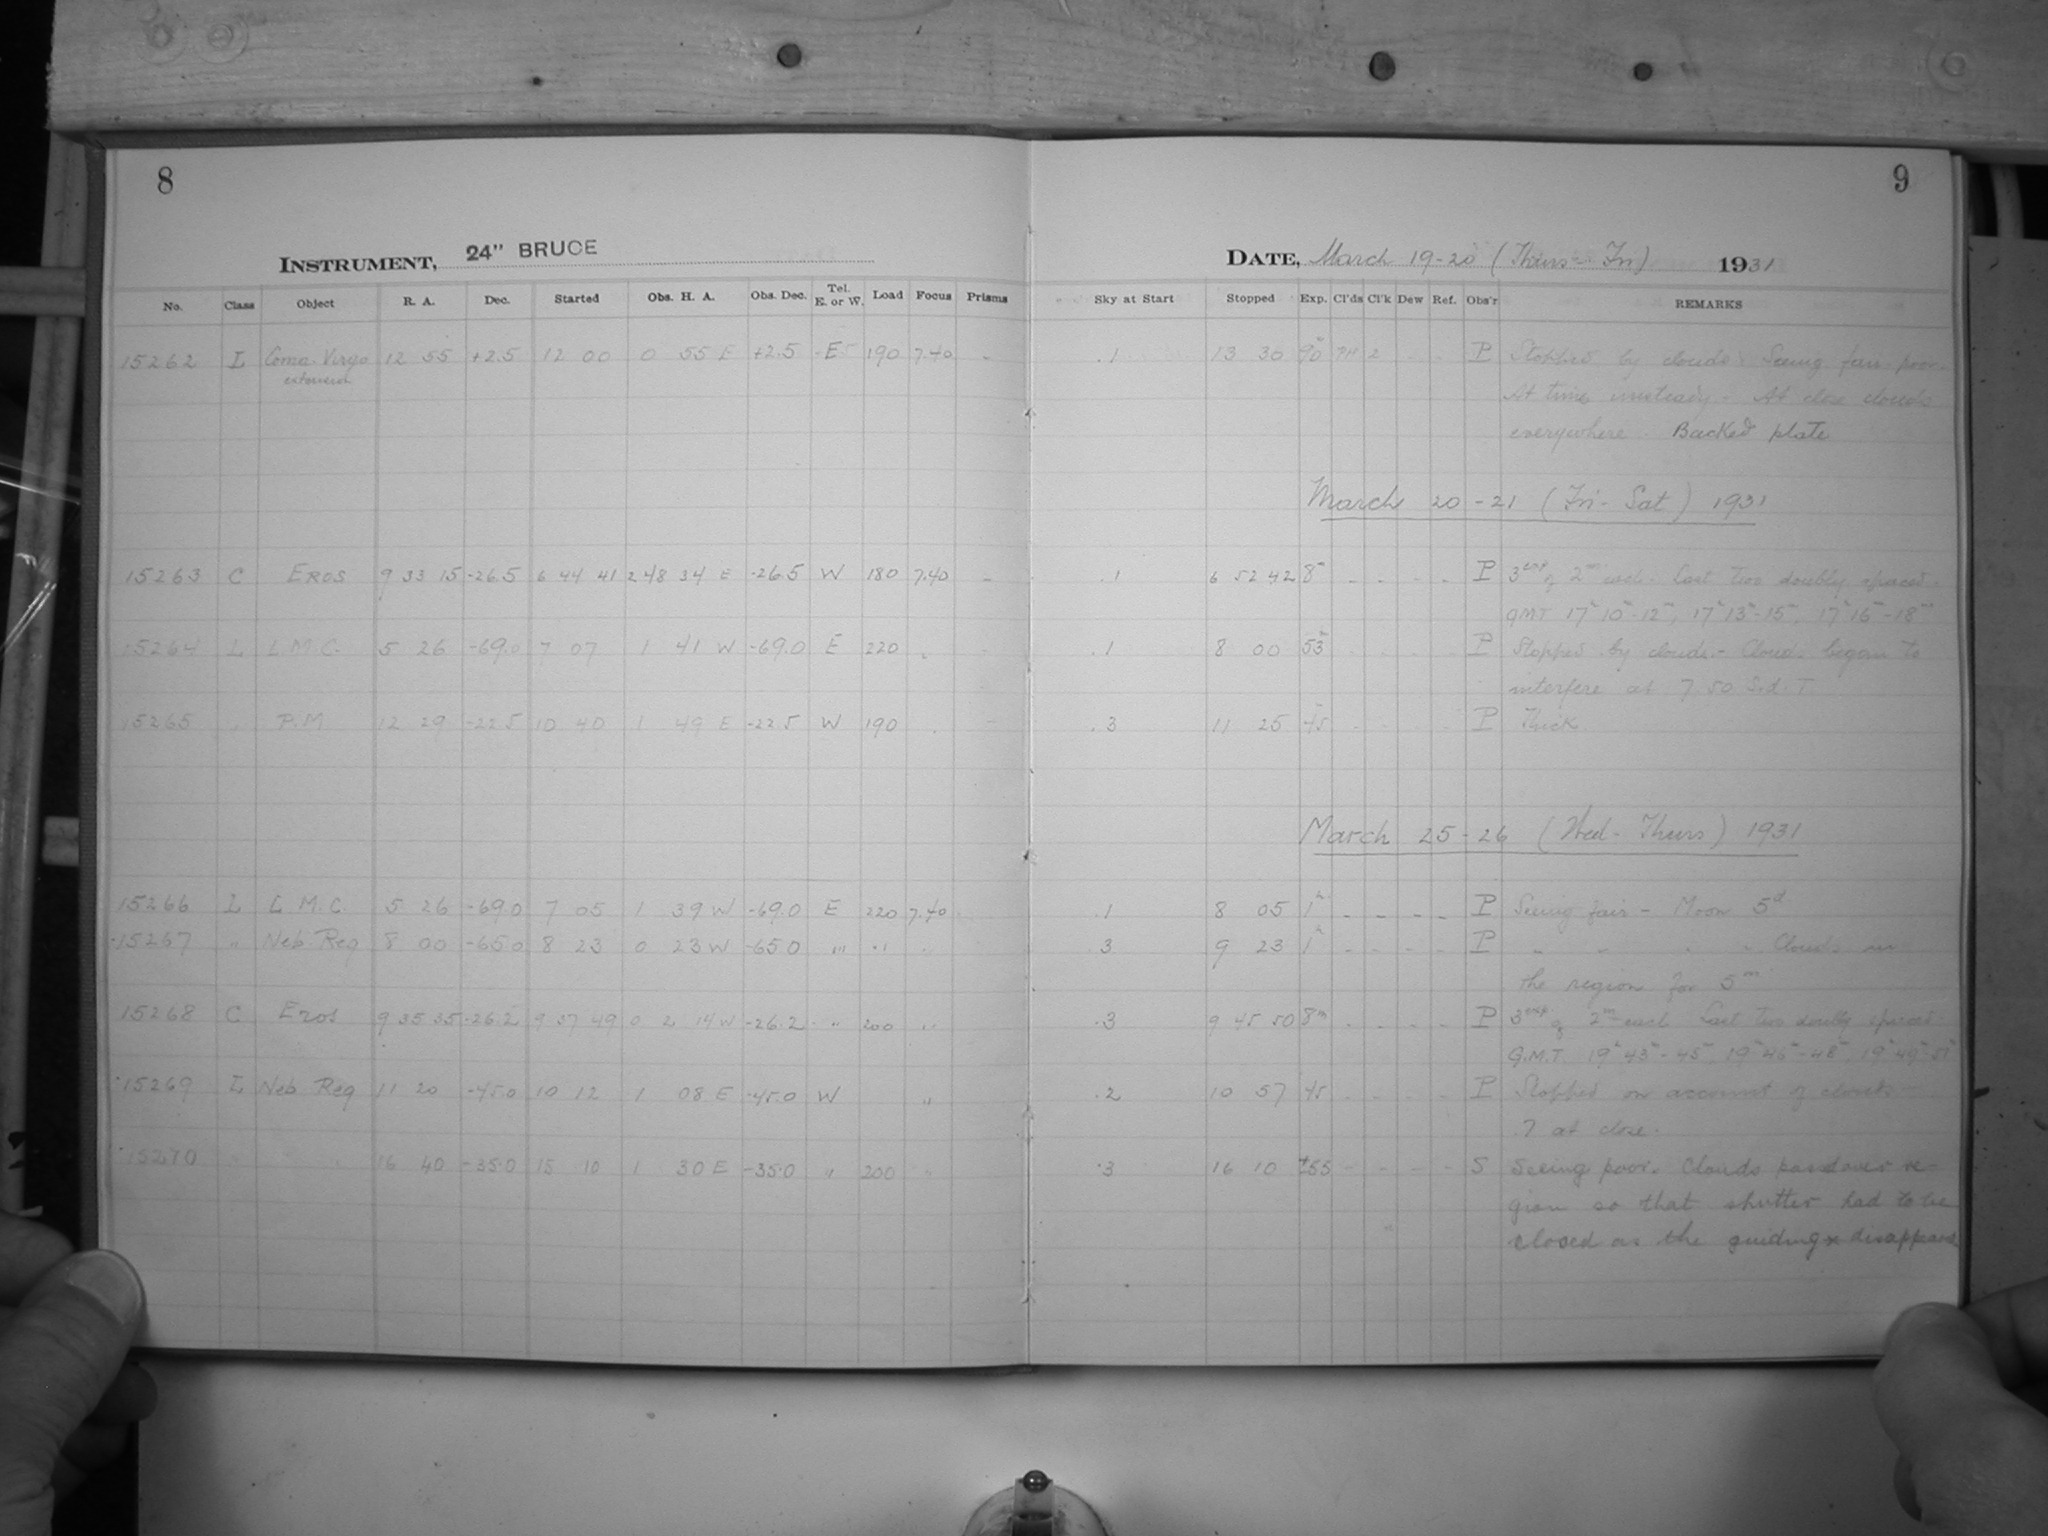 8
9
INSTRUMENT, 24" BRUCE
DATE, March 19-20 (Thurs - Fri) 1931
No. Class Object R. A. Dec. Started Obs. H. A. Obs. Dec. Tel. E. or W. Load Focus Prisms Sky at Start Stopped Exp. Cl'ds Cl'k Dew Ref. Obs'r REMARKS
15262 L Coma-Virgo 12 55 +2.5 12 00 0 55 E +2.5 E 190 7.40 - .1 13 30 90 2 - - P Stopped by clouds. Seeing fair poor.
extension At times unsteady - At close clouds
everywhere. Backed plate
March 20-21 (Fri - Sat) 1931
15263 C EROS 9 33 15 -26.5 6 44 41 2 48 34 E -26.5 W 180 7.40 - .1 6 52 42 8m - - - - P 3 exp of 2m each. Last two doubly spaced.
GMT 17h10m-12m, 17h13m-15m, 17h16m-18m
15264 L L.M.C. 5 26 -69.0 7 07 1 41 W -69.0 E 220 " .1 8 00 53m - - - - P Stopped by clouds - Clouds began to
interfere at 7 50 Sid. T.
15265 " P.M 12 29 -22.5 10 40 1 49 E -22.5 W 190 " - .3 11 25 45 - - - - P Thick
March 25-26 (Wed - Thurs) 1931
15266 L L.M.C. 5 26 -69.0 7 05 1 39 W -69.0 E 220 7.40 .1 8 05 1h - - - - P Seeing fair - Moon 5d
15267 " Neb Reg 8 00 -65.0 8 23 0 23 W -65.0 " " " .3 9 23 1h - - - - P " " " " Clouds in
the region for 5m
15268 C Eros 9 35 35 -26.2 9 37 49 0 2 14 W -26.2 " 200 " .3 9 45 50 8m - - - - P 3 exp of 2m each. Last two doubly spaced
G.M.T. 19h43m-45m, 19h46m-48m, 19h49m-51m
15269 L Neb Reg 11 20 -45.0 10 12 1 08 E -45.0 W " .2 10 57 45 - - - - P Stopped on account of clouds
.7 at close.
15270 " " 16 40 -35.0 15 10 1 30 E -35.0 " 200 " .3 16 10 ±55 - - - - S Seeing poor. Clouds passed over re-
gion so that shutter had to be
closed as the guiding * disappeared